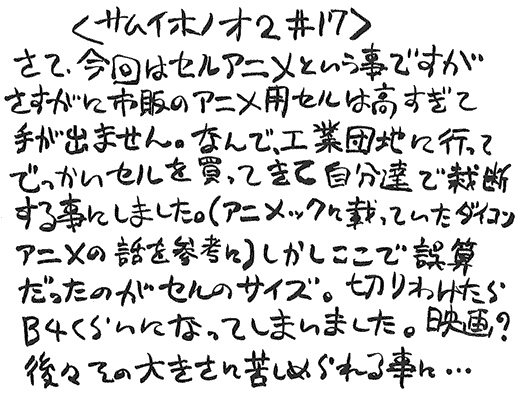 <サムイホノオ2#17>
さて、今回はセルアニメという事ですが
さすがに市販のアニメ用セルは高すぎて
手が出ません。なんで、工業団地に行って
でっかいセルを買ってきて自分達で裁断
する事にしました。(アニメックに載っていたダイコン
アニメの話を参考に)しかしここで誤算
だったのがセルのサイズ。切りわけたら
B4くらいになってしまいました。映画?
後々その大きさに苦しめられる事に…